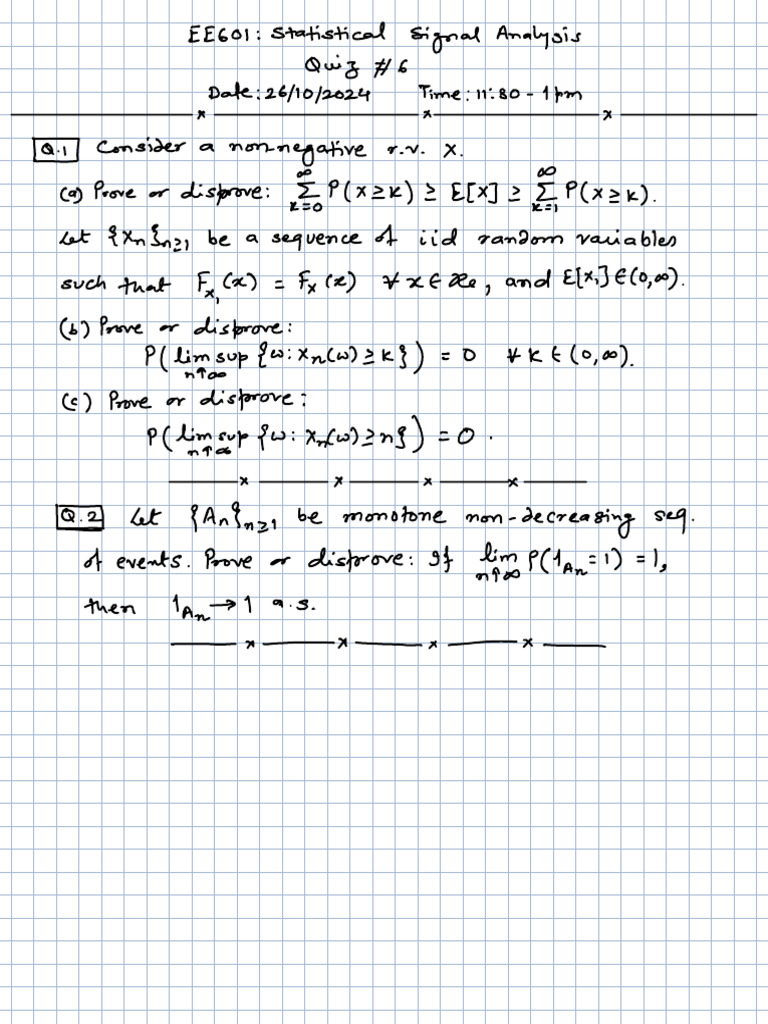 EE601: Statistical Signal Analysis
Quiz #6
Date: 26/10/2024 Time: 11:30 - 1pm
Q.1 Consider a non-negative r.v. X.
(a) Prove or disprove: ∑_{k=0}^{∞} P(X≥k) ≥ E[X] ≥ ∑_{k=1}^{∞} P(X≥k).
Let {X_n}_{n≥1} be a sequence of iid random variables
such that F_{X_1}(x) = F_X(x) ∀ x ∈ ℝ, and E[X_1] ∈ (0,∞).
(b) Prove or disprove:
P(lim sup_{n↑∞} {ω: X_n(ω) ≥ k}) = 0 ∀ k ∈ (0,∞).
(c) Prove or disprove:
P(lim sup_{n↑∞} {ω: X_n(ω) ≥ n}) = 0.
Q.2 Let {A_n}_{n≥1} be monotone non-decreasing seq.
of events. Prove or disprove: If lim_{n↑∞} P(1_{A_n} = 1) = 1,
then 1_{A_n} → 1 a.s.